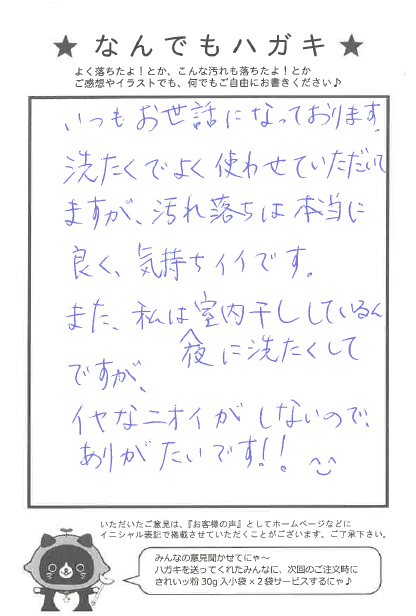 ★なんでもハガキ★
よく落ちたよ！とか、こんな汚れも落ちたよ！とか
ご感想やイラストでも、何でもご自由にお書きください♪
いつもお世話になっております。
洗たくでよく使わせていただいて
ますが、汚れ落ちは本当に
良く、気持ちイイです。
また、私は室内干ししているん
夜に洗たくして
ですが、
イヤなニオイがしないので、
ありがたいです!!
いただいたご意見は、『お客様の声』としてホームページなどに
イニシャル表記で掲載させていただくことがございます。ご了承下さい。
みんなの意見聞かせてにゃ～
ハガキを送ってくれたみんなに、次回のご注文時に
きれいッ粉30g入小袋×2袋サービスするにゃ♪